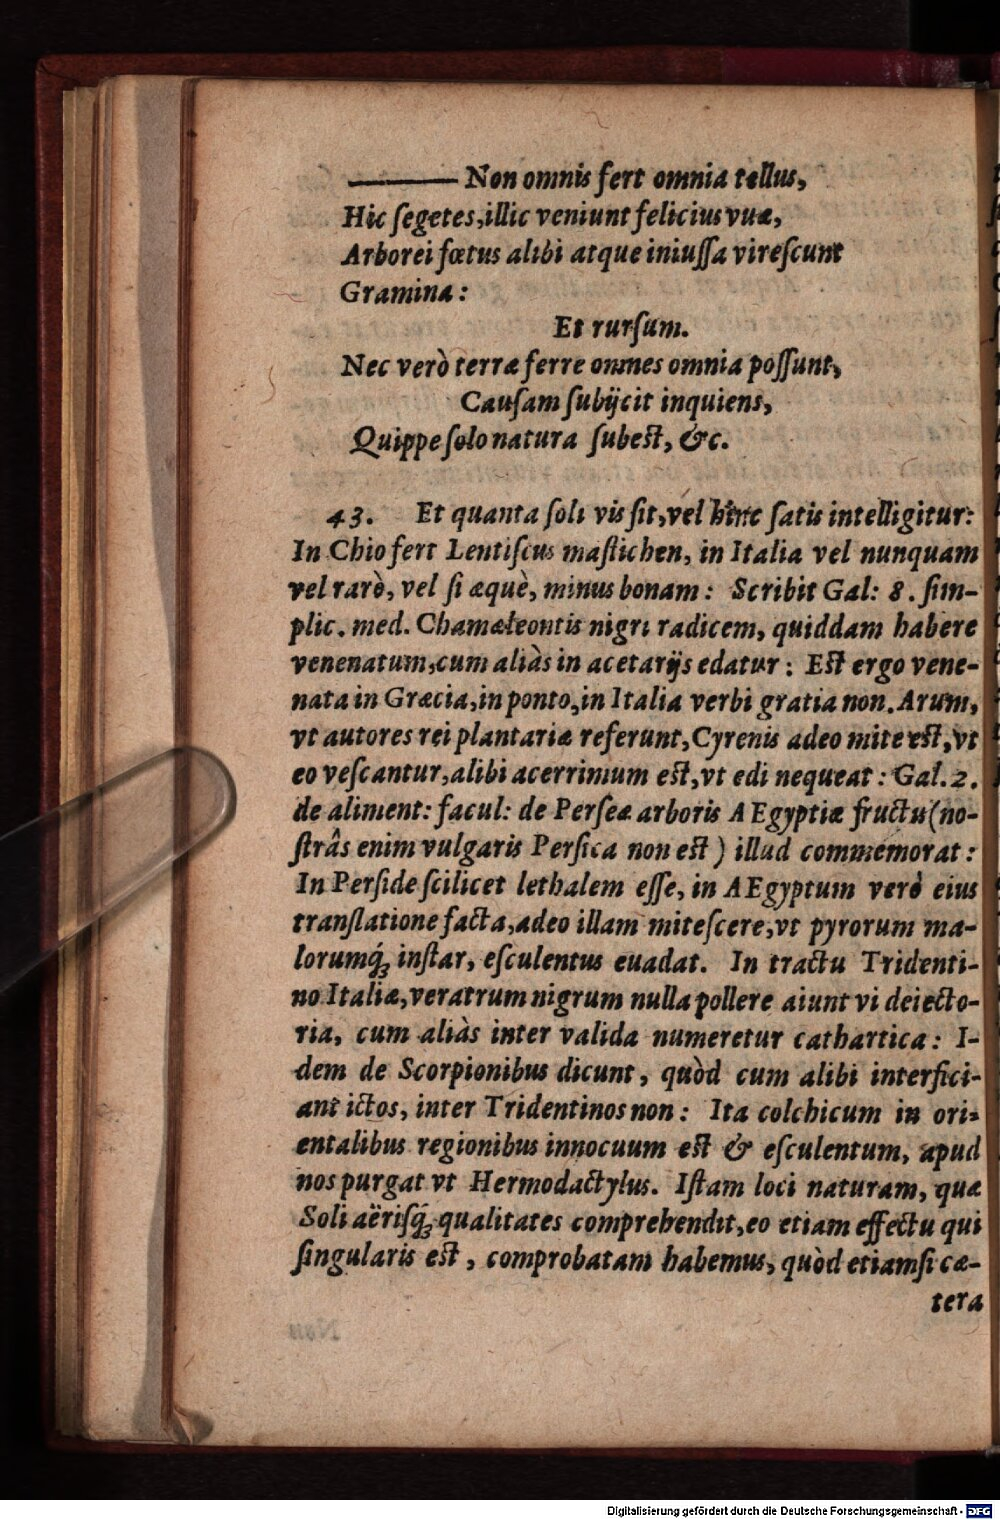 ——— Non omnis fert omnia tellus,
Hic ſegetes, illic veniunt felicius vuæ,
Arborei fœtus alibi atque iniuſſa vireſcunt
Gramina:
Et rurſum.
Nec verò terræ ferre omnes omnia poſſunt,
Cauſam ſubijcit inquiens,
Quippe ſolo natura ſubeſt, &c.
43. Et quanta ſoli vis ſit, vel hinc ſatis intelligitur:
In Chio fert Lentiſcus maſtichen, in Italia vel nunquam
vel rarò, vel ſi æquè, minus bonam: Scribit Gal: 8. ſim-
plic. med. Chamæleontis nigri radicem, quiddam habere
venenatum, cum aliàs in acetarijs edatur: Eſt ergo vene-
nata in Græcia, in ponto, in Italia verbi gratia non. Arum,
vt autores rei plantariæ referunt, Cyrenis adeo mite eſt, vt
eo veſcantur, alibi acerrimum eſt, vt edi nequeat: Gal. 2.
de aliment: facul: de Perſeæ arboris AEgyptiæ fructu (no-
ſtrâs enim vulgaris Perſica non eſt) illud commemorat:
In Perſide ſcilicet lethalem eſſe, in AEgyptum verò eius
tranſlatione facta, adeo illam miteſcere, vt pyrorum ma-
lorumq́ꝫ inſtar, eſculentus euadat. In tractu Tridenti-
no Italiæ, veratrum nigrum nulla pollere aiunt vi deiecto-
ria, cum aliàs inter valida numeretur cathartica: I-
dem de Scorpionibus dicunt, quòd cum alibi interfici-
ant ictos, inter Tridentinos non: Ita colchicum in ori-
entalibus regionibus innocuum eſt & eſculentum, apud
nos purgat vt Hermodactylus. Iſtam loci naturam, quæ
Soli aëriſq́ꝫ qualitates comprehendit, eo etiam effectu qui
ſingularis eſt, comprobatam habemus, quòd etiamſi cæ-
tera
Digitalisierung gefördert durch die Deutsche Forschungsgemeinschaft - DFG